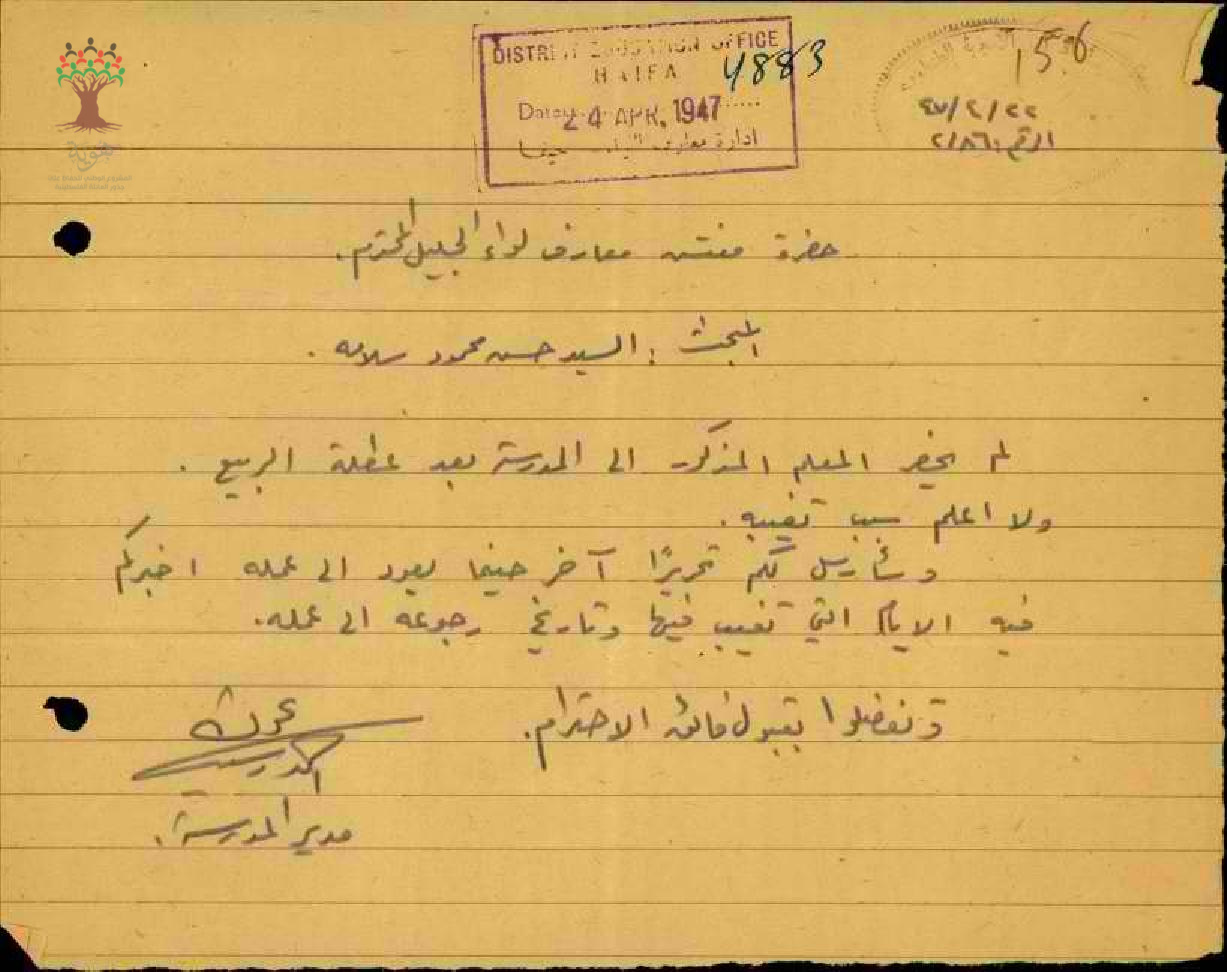 DISTRICT EDUCATION OFFICE
HAIFA
4883
Dated 24 APR. 1947
ادارة معارف حيفا
156
٤٧/٤/٢٢
الرقم: ٢/٨٦
هوية
حضرة مفتش معارف لواء الجليل المحترم.
المبحث: السيد حسن محمود سلامه.
لم يحضر المعلم المذكور الى المدرسة بعد عطلة الربيع.
ولا اعلم سبب تغيبه.
وسأرسل لكم تحريرًا آخر حينما يعود الى عمله اخبركم
فيه الايام التي تغيب فيها وتاريخ رجوعه الى عمله.
وتفضلوا بقبول فائق الاحترام.
مدير المدرسة.